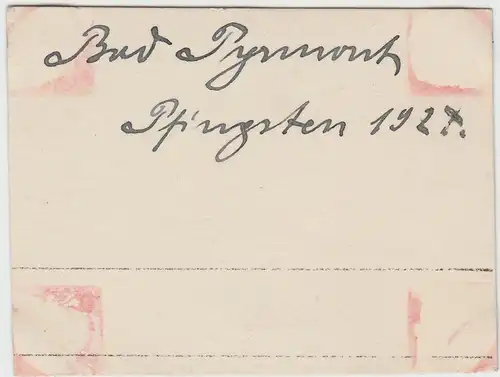 Bad Pyrmont
Pfingsten 1927.